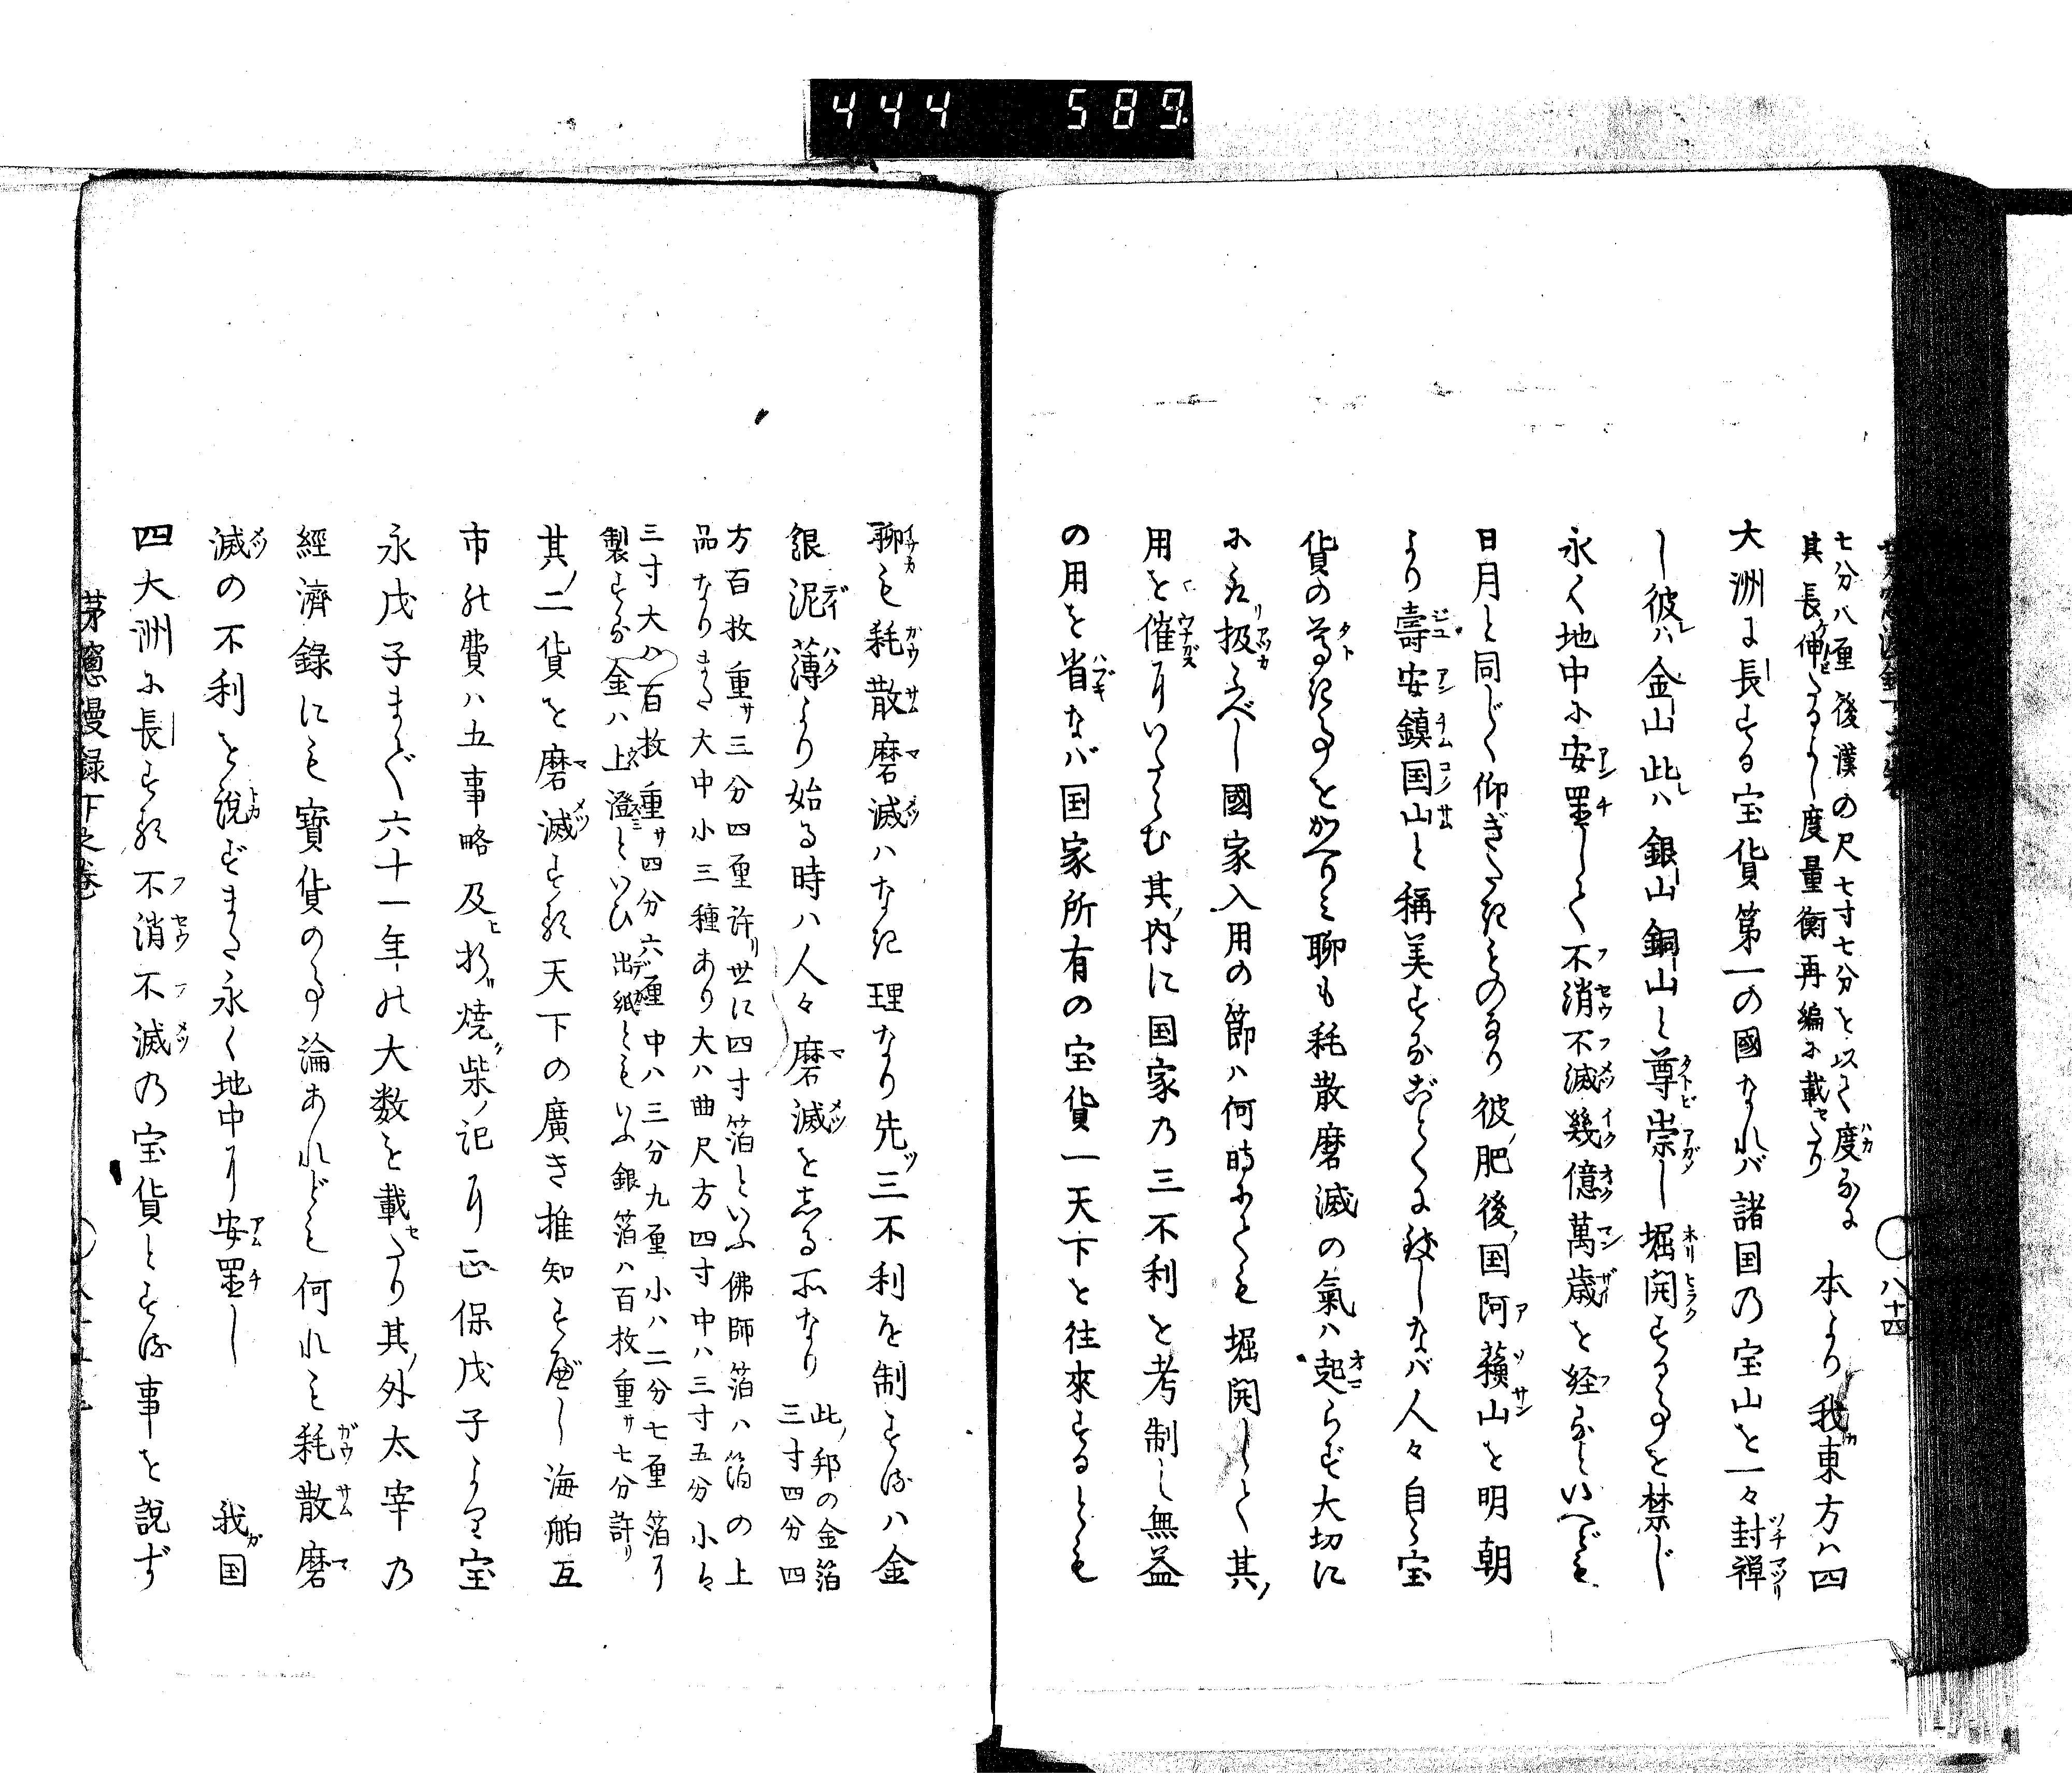 444 589
八十四
七分八厘後漢の尺七寸七分を以て度るに
其長伸たるよし度量衡再編に載せたり
本より我東方ハ四
大洲に長する宝貨第一の國なれバ諸国の宝山を一々封禅
し彼ハ金山此ハ銀山銅山と尊崇し堀開する事を禁じ
永く地中に安置して不消不滅幾億萬歳を経るといへども
日月と同じく仰ぎたきものなり彼ノ肥後ノ国阿蘓山を明朝
より壽安鎮国山と稱美するがごとくに致しなバ人々自ラ宝
貨の尊き事をかへりミ聊も耗散磨滅の氣ハ起らず大切に
に取扱ふべし國家入用の節ハ何時にても堀開して其ノ
用を催すにいたらむ其ノ内に国家乃三不利を考制し無益
の用を省なバ国家所有の宝貨一天下を往來するとも
聊も耗散磨滅ハなき理なり先ツ三不利を制するハ金
銀泥薄より始る時ハ人々磨滅をしる所なり
此ノ邦の金箔
三寸四分四
方百枚重サ三分四厘許リ世に四寸箔といふ佛師箔ハ箔の上
品なりまた大中小三種あり大ハ曲尺方四寸中ハ三寸五分小ハ
三寸大ハ百枚重サ四分六厘中ハ三分九厘小ハ二分七厘箔に
製する金ハ上澄といひ出紙ともいふ銀箔ハ百枚重サ七分許リ
其ノ二貨を磨滅する天下の廣き推知すべし海舶互
市の費ハ五事略及ヒ折焼柴ノ記に正保戊子より宝
永戊子まで六十一年の大数を載せたり其ノ外太宰乃
經濟錄にも寶貨の事論あれども何れも耗散磨
滅の不利を説ずまた永く地中に安置し
我国
四大洲に長する不消不滅乃宝貨とする事を説ず
茅窻漫録下之巻